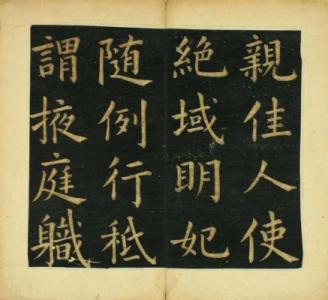 親佳人使
絶域明妃
随例行秪
謂掖庭職